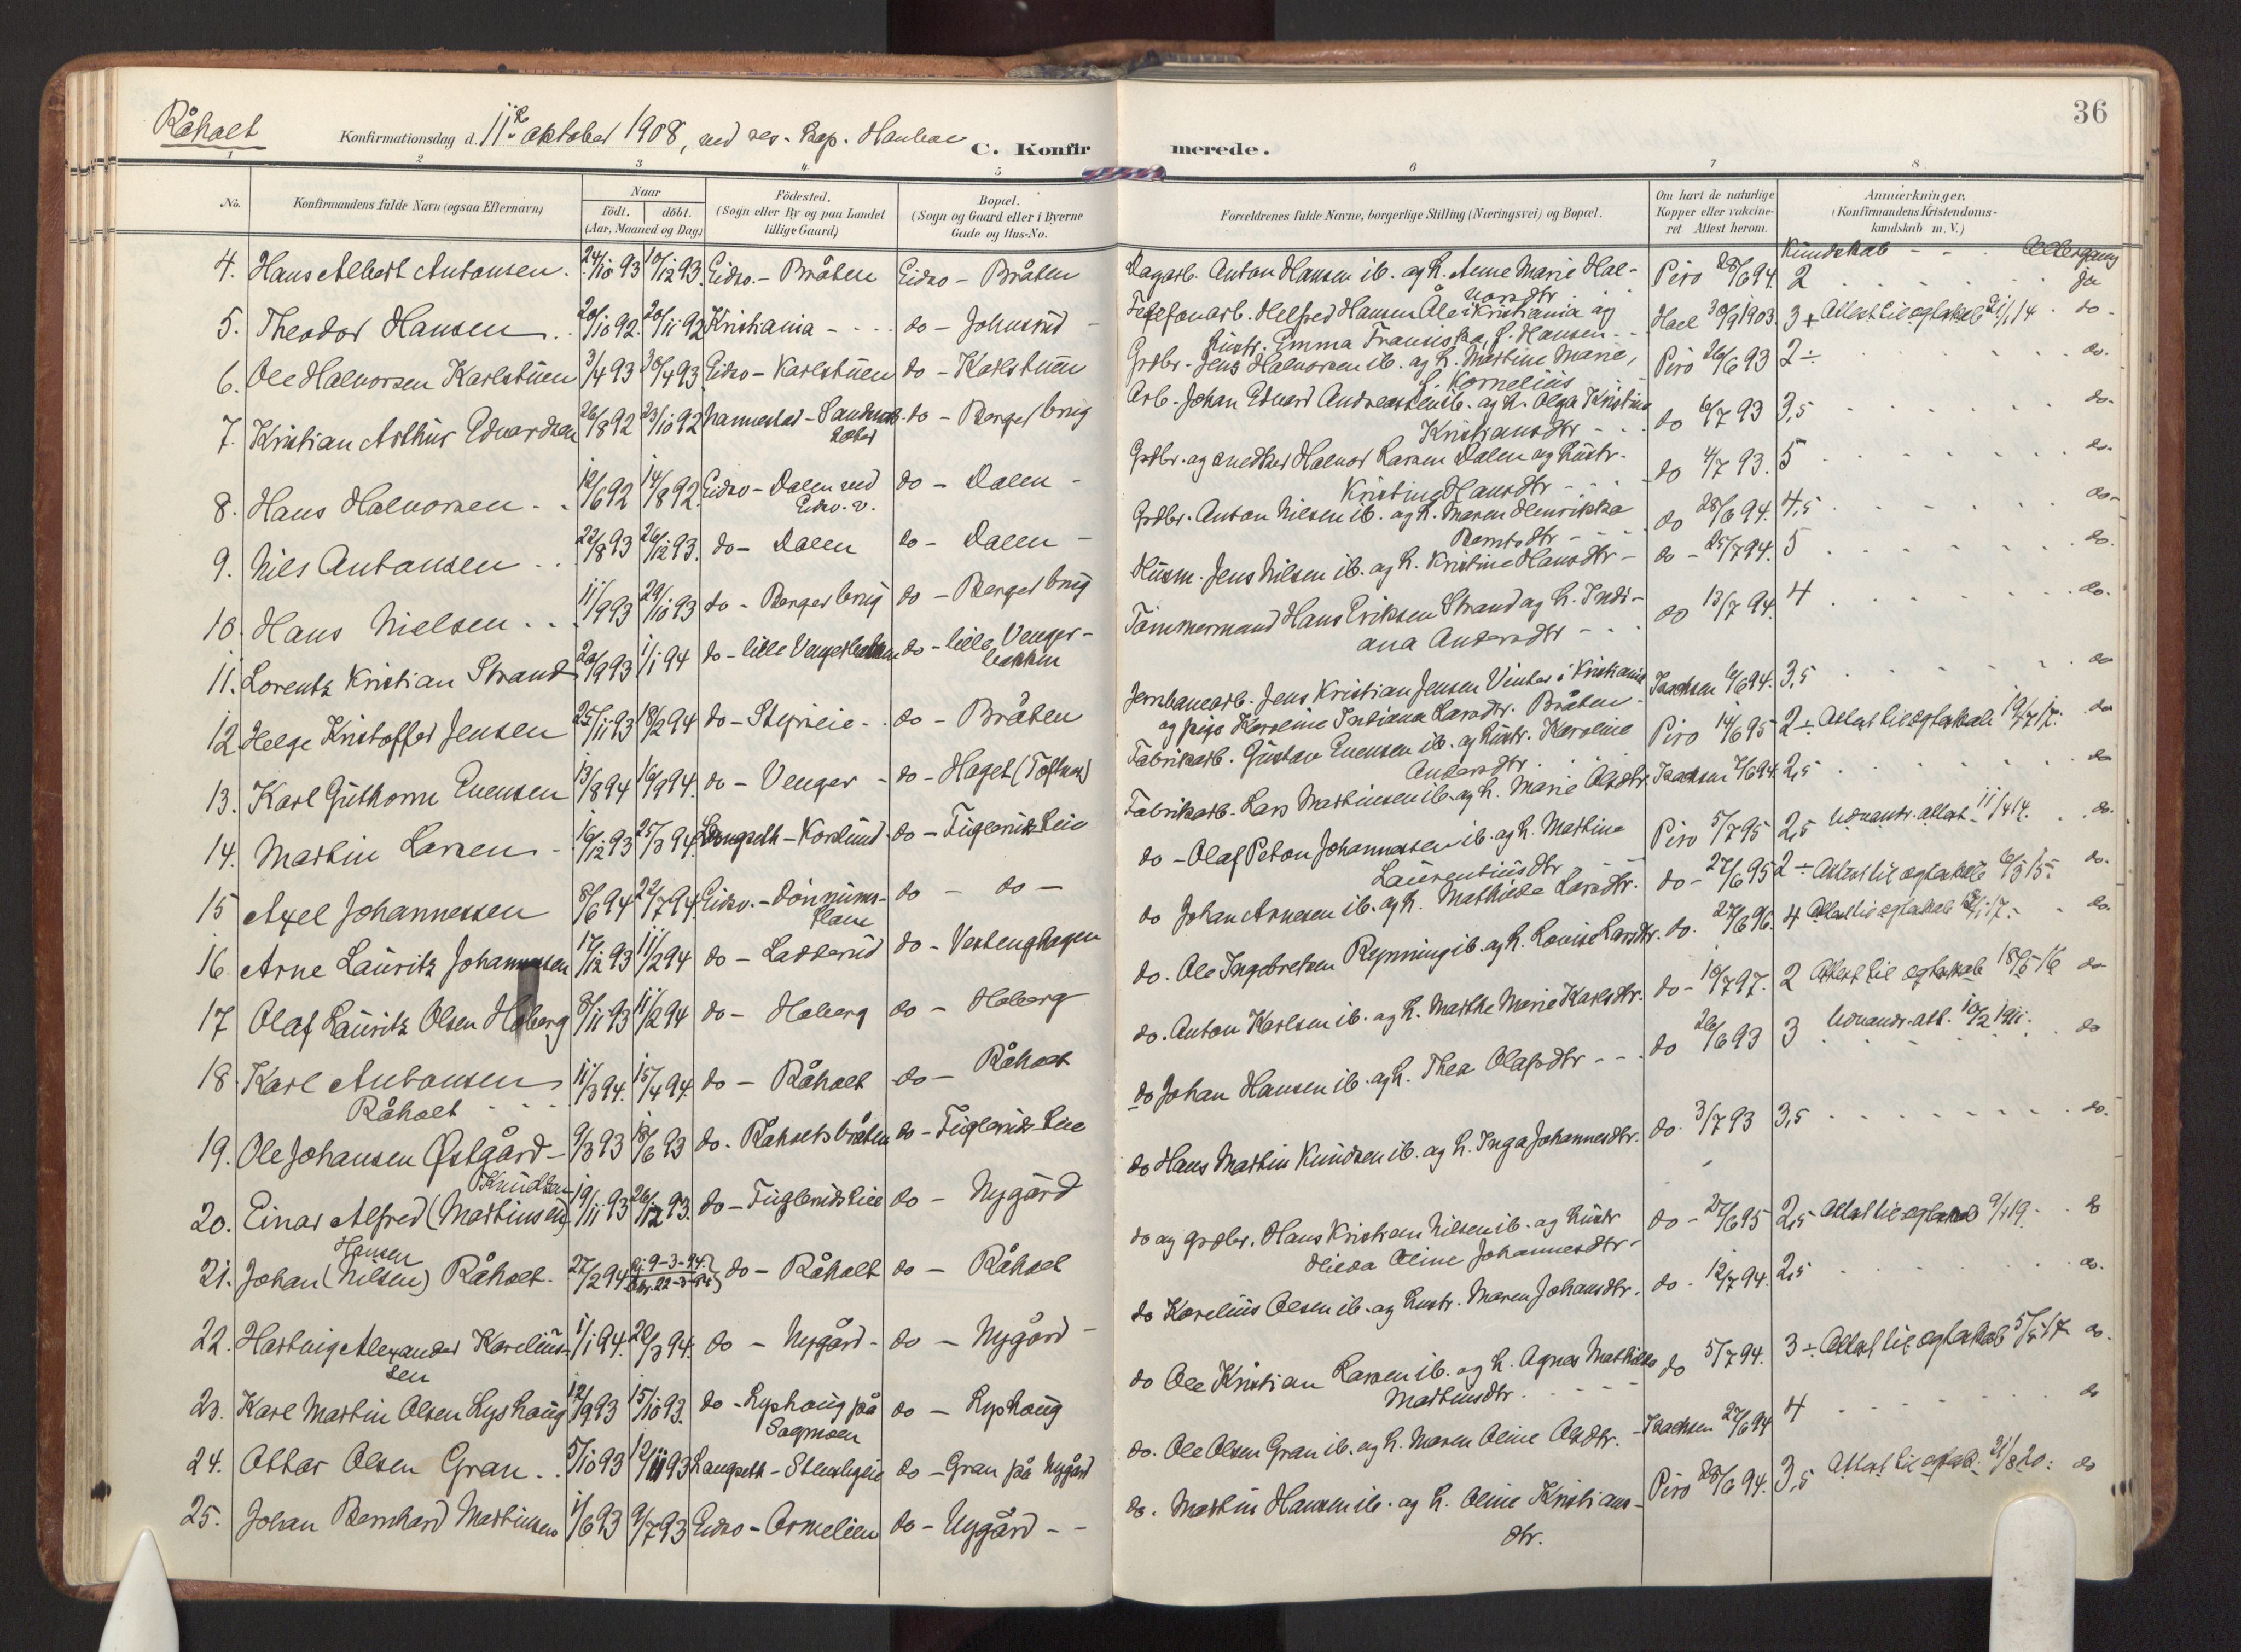 36
Råholt
Konfirmationsdag d. 11. oktober 1908, ved res. Kap.
C. Konfirmerede.
1 2 3 4 5 6 7 8
No.
Konfirmandens fulde Navn (ogsaa Efternavn)
Naar
født. døbt.
(Aar, Maaned og Dag.)
Födested.
(Sogn eller By og paa Landet tillige Gaard)
Bopæl.
(Sogn og Gaard eller i Byerne Gade og Hus-No.
Forældrenes fulde Navne, borgerlige Stilling (Næringsvei) og Bopæl.
Om havt de naturlige Kopper eller vakcineret Attest herom.
Anmærkninger.
(Konfirmandens Kristendomskundskab m. V.)
Kundskab - - Altergang
4. Hans Albert Antonsen. 24/10 93 10/12 93. Eidsv. - Bråten Eidsv - Bråten Dagarb. Anton Hansen ib. og h. Anne Marie Halvorsdtr Piro 28/6 94. 2 ja
5. Theodor Hansen 20/10 92. 20/11 92 Kristiania - do - Johnsrud Telefonarb. Helfred Hansen Åle i Kristiania og hustr. Emma Fransiska, f. Hansen 30/9 1903. 3+ Attest til egteskab 21/1 14 do-
6. Ole Halvorsen Karlstuen 3/4 93 30/4 93. Eidsv - Karlstuen do - Karlstuen Grdbr. Jens Halvorsen ib. og h. Martine Marie, f. Kornelius Piro 26/6 93 2÷ do.
7. Kristian Arthur Edvardsen 26/8 92 23/10 92 Nannestad - do - Berger brug Arb. Johan Edvard Andreassen ib. og h. Olga Kristine Kristiansdtr do 6/7 93 3,5 do-
8. Hans Halvorsen 12/6 92 14/8 92. Eidsv - Dalen ved Eidsv. v. do - Dalen - Grdbr. og snedker Halvor Larsen Dalen og hustr. Kristine Hansdtr do 4/7 93. 5 do-
9. Nils Antonsen 22/8 93 26/12 93. do - Dalen do - Dalen - Grdbr. Anton Nilsen ib. og h. Maren Henrikka Berntsdtr do 28/6 94. 4,5 do-
10. Hans Nielsen 11/9 93 29/10 93 do - Berger brug do - Berger brug Husm. Jens Nilsen ib. og h. Kristine Hansdtr - do - 25/7 94. 5 do.
11. Lorentz Kristian Strand 20/9 93 1/1 94 do - lille Vengerbakken do - lille Vengerbakken Tömmermand Hans Eriksen Strand og h. Indiana Andersdtr do 13/7 94. 4 do.
12 Helge Kristoffer Jensen 25/11 93 18/2 94 do - Styrieie do - Bråten Jernbanearb. Jens Kristian Jensen Vinter i Kristiania og pige Karoline Indiana Larsdtr. Bråten Isachsen 6/6 94. 3,5 do
13. Karl Guthorm Evensen 13/8 94 16/9 94. do - Venger - do - Haget (Toftner) Fabrikarb. Gustav Evensen ib. og hustr. Karoline Andersdtr Piro 14/6 95 2÷ Attest til egteskab 19/7 17. do
14. Martin Larsen 16/12 93 25/3 94. Langseth - Korslund do - Fuglerudseie Fabrikarb. Lars Martinsen ib. og h. Marie Olsdtr. Isachsen 7/6 94. 2,5 do
15 Axel Johannessen 8/6 94 22/7 94 Eidsv. - do - do - do - Olaf Peton Johannessen ib. og h. Martine Laurentiusdtr Piro 5/7 95 2,5 Udvandr. attest 11/4 14. do.
16. Arne Lauritz Johannessen 17/12 93 11/2 94 do - Ladderud do - Vestenghagen do Johan Arnesen ib. og h. Mathilde Larsdtr. do - 27/6 95 2÷ Attest til egteskab 6/3 15. do.
17 Olaf Lauritz Olsen Hoberg 8/11 93 11/2 94 do - Hoberg do - Hoberg do. Ole Ingebretsen Rynning ib. og h. Lovise Larsdtr. do. 27/6 96. 4 Attest til egteskab do.
18. Karl Antonsen Råholt 11/3 94. 15/4 94. do - Råholt do - Råholt do. Anton Karlsen ib. og h. Marthe Marie Karlsdtr. do - 10/7 97. 2 Attest til egteskab 18/5 16 do
19. Ole Johansen Østgård - 9/3 93 18/6 93 do. Råholtsbråten do - Fuglerudseie do Johan Hansen ib. og h. Thea Olafsdtr do 26/6 93 3 Udvandr. att. 10/2 1911. do
20. Einar Alfred (Martinsen) Knudsen 19/11 93 26/12 93. do - Fuglerudseie do - Nygård do Hans Martin Knudsen ib. og h. Inga Johannesdtr. do 3/7 93 3,5 do.
21. Johan (Nilsen) Hansen Råholt. 27/2 94 9-3-94. 22-3-94 do - Råholt do - Råholt do og grdbr. Hans Kristian Nilsen ib. og hustr Hilda Oline Johannesdtr - do - 27/6 95 2,5 Attest til egteskab 9/1 19. do
22. Hartvig Alexander Kareliussen 1/1 94. 20/3 94. do - Nygård - do - Nygård - do Karelius Olsen ib. og hustr. Maren Johansdtr. do - 12/7 94. 2,5 do.
23. Karl Martin Olsen Lyshaug 12/9 93 15/10 93. do - Lyshaug på Sagmoen do - Lyshaug do Ole Kristian Larsen ib. og h. Agnes Mathilde Martinsdtr. do 5/7 94. 3÷ Attest til egteskab 5/5 17 do.
24. Ottar Olsen Gran 5/10 93 12/11 93 Langseth - do - Gran på Nygård do. Ole Olsen Gran ib. og h. Maren Oline Olsdtr. - Isachsen 27/6 94 4 do
25. Johan Bernhard Martinsen 1/6 93 9/7 93 Eidsv - Ormelien do - Nygård - - do. Martin Hansen ib. og h. Oline Kristiansdtr. Piro 28/6 94. 3,5 Attest til egtesk. 21/8 20. do